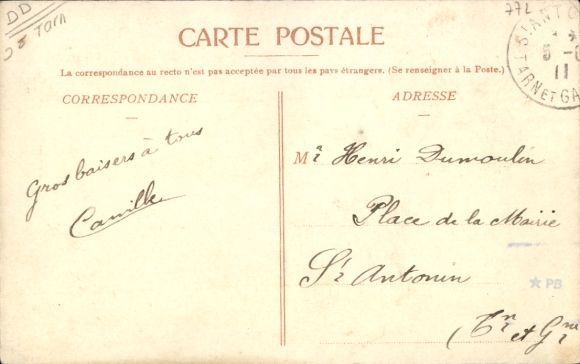 DD
Tarn
772
CARTE POSTALE
La correspondance au recto n'est pas acceptée par tous les pays étrangers. (Se renseigner à la Poste.)
CORRESPONDANCE
Gros baisers à tous
Camille
ADRESSE
Mr Henri Dumoulin
Place de la Mairie
St Antonin
Tn et Gne
ST ANTO
5
11
TARN ET GA
★ PB